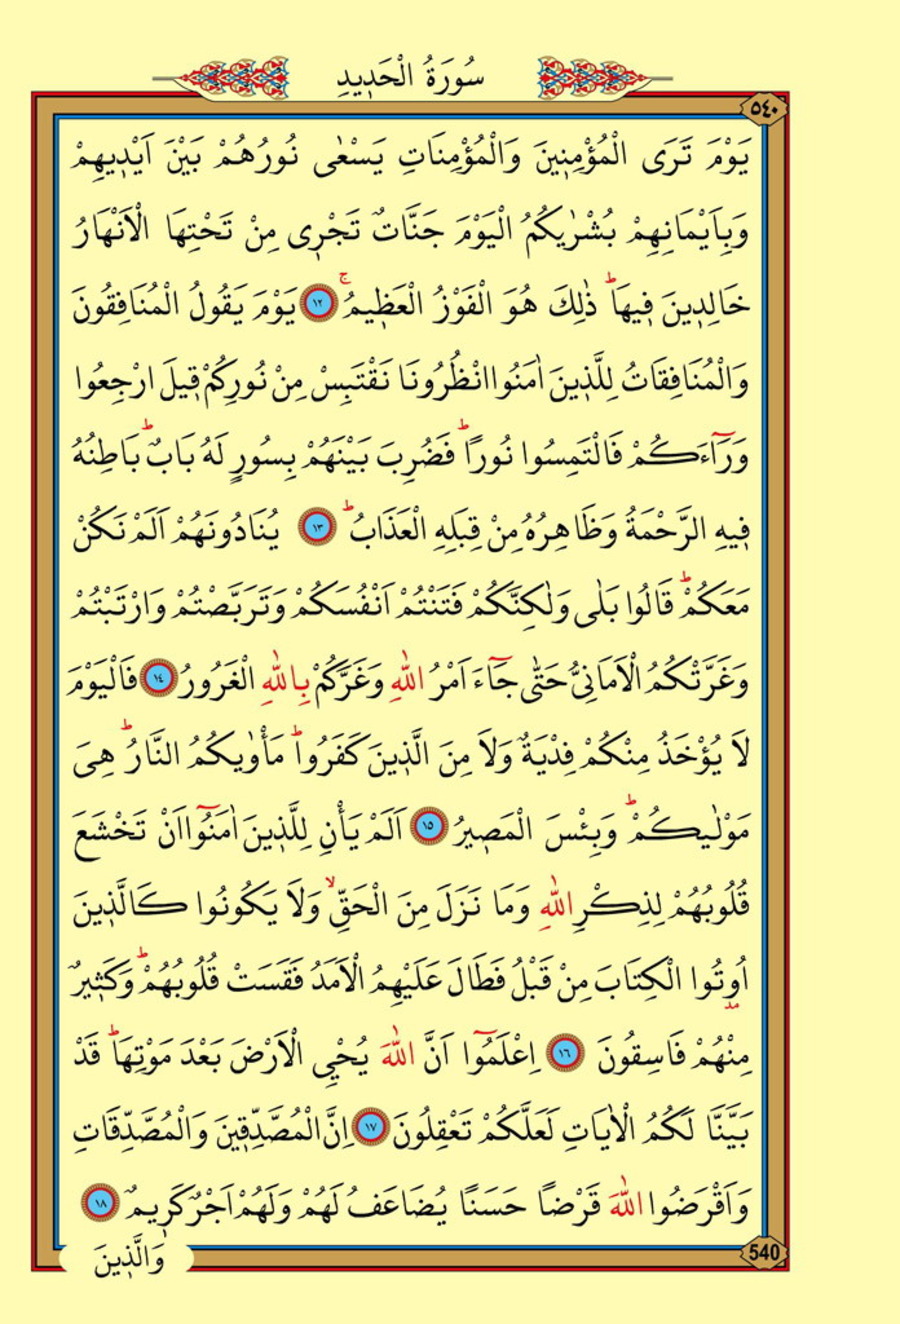 سُورَةُ الْحَدِيدِ
٥٤٠
يَوْمَ تَرَى الْمُؤْمِنِينَ وَالْمُؤْمِنَاتِ يَسْعٰى نُورُهُمْ بَيْنَ اَيْدِيهِمْ
وَبِاَيْمَانِهِمْ بُشْرٰيكُمُ الْيَوْمَ جَنَّاتٌ تَجْرِى مِنْ تَحْتِهَا الْاَنْهَارُ
خَالِدِينَ فِيهَاۜ ذٰلِكَ هُوَ الْفَوْزُ الْعَظِيمُۚ ١٢ يَوْمَ يَقُولُ الْمُنَافِقُونَ
وَالْمُنَافِقَاتُ لِلَّذِينَ اٰمَنُوا انْظُرُونَا نَقْتَبِسْ مِنْ نُورِكُمْ قِيلَ ارْجِعُوا
وَرَٓاءَكُمْ فَالْتَمِسُوا نُورًاۜ فَضُرِبَ بَيْنَهُمْ بِسُورٍ لَهُ بَابٌۜ بَاطِنُهُ
فِيهِ الرَّحْمَةُ وَظَاهِرُهُ مِنْ قِبَلِهِ الْعَذَابُۜ ١٣ يُنَادُونَهُمْ اَلَمْ نَكُنْ
مَعَكُمْۜ قَالُوا بَلٰى وَلٰكِنَّكُمْ فَتَنْتُمْ اَنْفُسَكُمْ وَتَرَبَّصْتُمْ وَارْتَبْتُمْ
وَغَرَّتْكُمُ الْاَمَانِىُّ حَتّٰى جَٓاءَ اَمْرُ اللّٰهِ وَغَرَّكُمْ بِاللّٰهِ الْغَرُورُ ١٤ فَالْيَوْمَ
لَا يُؤْخَذُ مِنْكُمْ فِدْيَةٌ وَلَا مِنَ الَّذِينَ كَفَرُواۜ مَأْوٰيكُمُ النَّارُۜ هِىَ
مَوْلٰيكُمْۜ وَبِئْسَ الْمَصِيرُ ١٥ اَلَمْ يَأْنِ لِلَّذِينَ اٰمَنُٓوا اَنْ تَخْشَعَ
قُلُوبُهُمْ لِذِكْرِ اللّٰهِ وَمَا نَزَلَ مِنَ الْحَقِّۙ وَلَا يَكُونُوا كَالَّذِينَ
اُوتُوا الْكِتَابَ مِنْ قَبْلُ فَطَالَ عَلَيْهِمُ الْاَمَدُ فَقَسَتْ قُلُوبُهُمْۜ وَكَثِيرٌ
مِنْهُمْ فَاسِقُونَ ١٦ اِعْلَمُٓوا اَنَّ اللّٰهَ يُحْيِى الْاَرْضَ بَعْدَ مَوْتِهَاۜ قَدْ
بَيَّنَّا لَكُمُ الْاٰيَاتِ لَعَلَّكُمْ تَعْقِلُونَ ١٧ اِنَّ الْمُصَّدِّقِينَ وَالْمُصَّدِّقَاتِ
وَاَقْرَضُوا اللّٰهَ قَرْضًا حَسَنًا يُضَاعَفُ لَهُمْ وَلَهُمْ اَجْرٌ كَرِيمٌ ١٨
وَالَّذِينَ
540